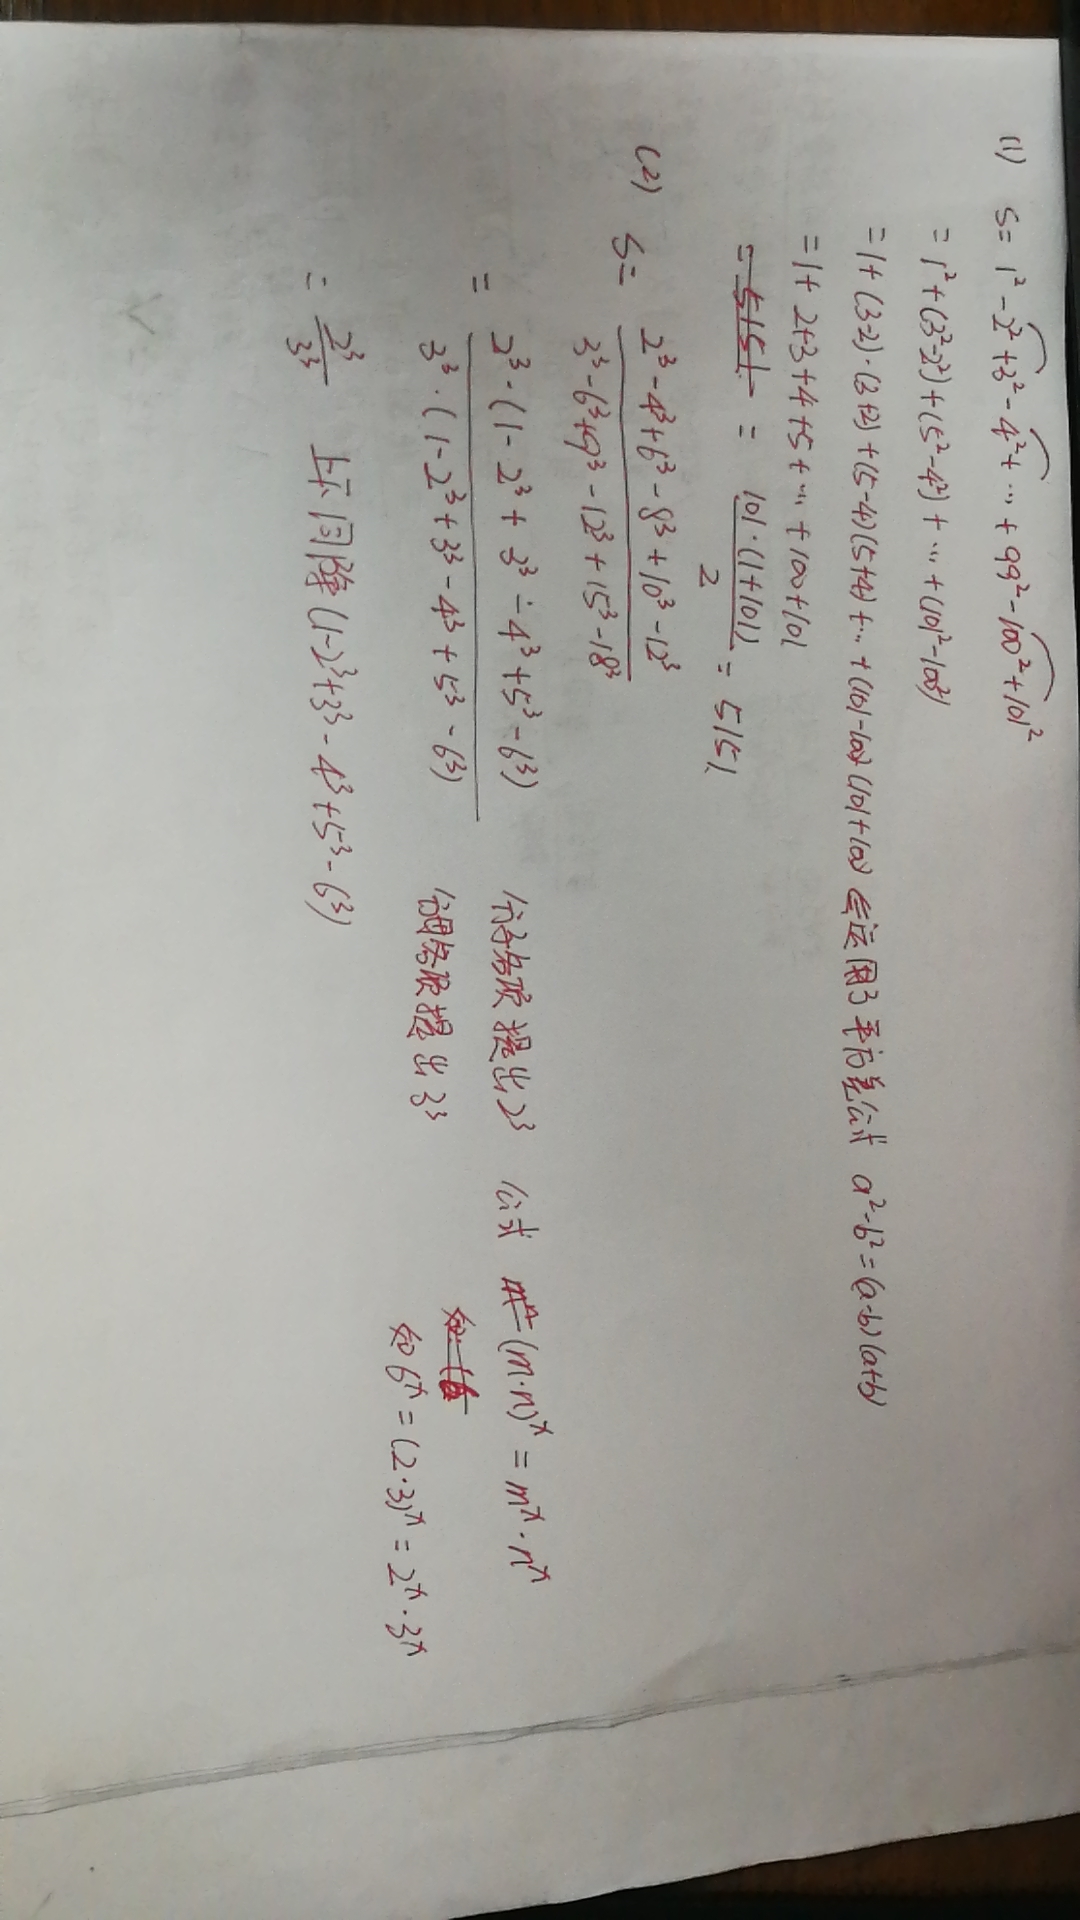 (1) S = 1² - 2² + 3² - 4² + … + 99² - 100² + 101²
= 1² + (3² - 2²) + (5² - 4²) + … + (101² - 100²)
= 1 + (3-2)·(3+2) + (5-4)(5+4) + … + (101-100)(101+100) 运用了平方差公式 a²-b² = (a-b)(a+b)
= 1 + 2+3 + 4 + 5 + … + 100 + 101
= 5151 = 101·(1+101)/2 = 5151.
(2) S = 2³ - 4³ + 6³ - 8³ + 10³ - 12³
3³ - 6³ + 9³ - 12³ + 15³ - 18³
= 2³·(1 - 2³ + 3³ - 4³ + 5³ - 6³) 分子各项提出2³ 公式 (m·n)ˣ = mˣ·nˣ
3³·(1 - 2³ + 3³ - 4³ + 5³ - 6³) 分母各项提出3³ 如 6ˣ = (2·3)ˣ = 2ˣ·3ˣ
= 2³/3³ 上下同除(1-2³+3³-4³+5³-6³)